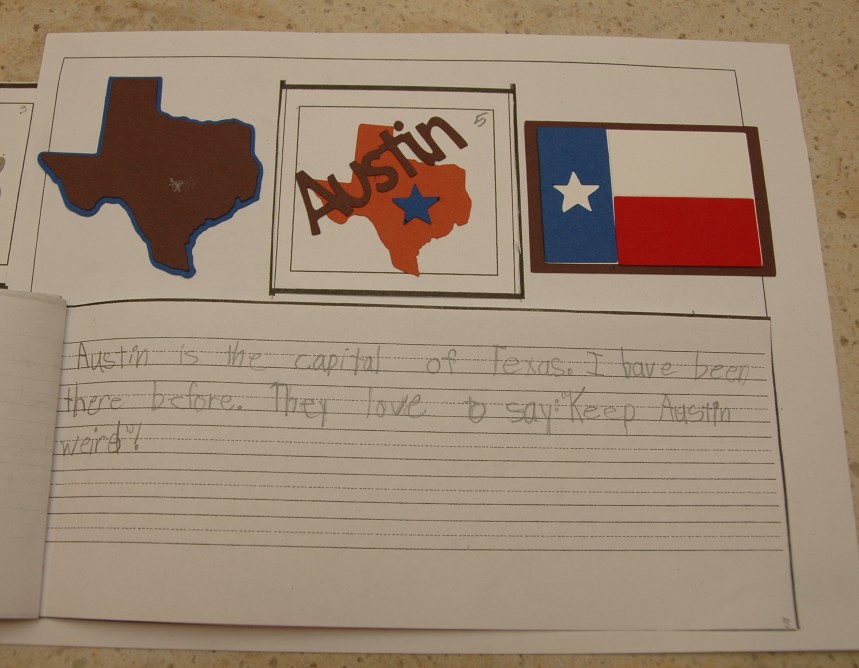 3
5
Austin
Austin is the capital of Texas. I have been
there before. They love to say: "Keep Austin
weird"!